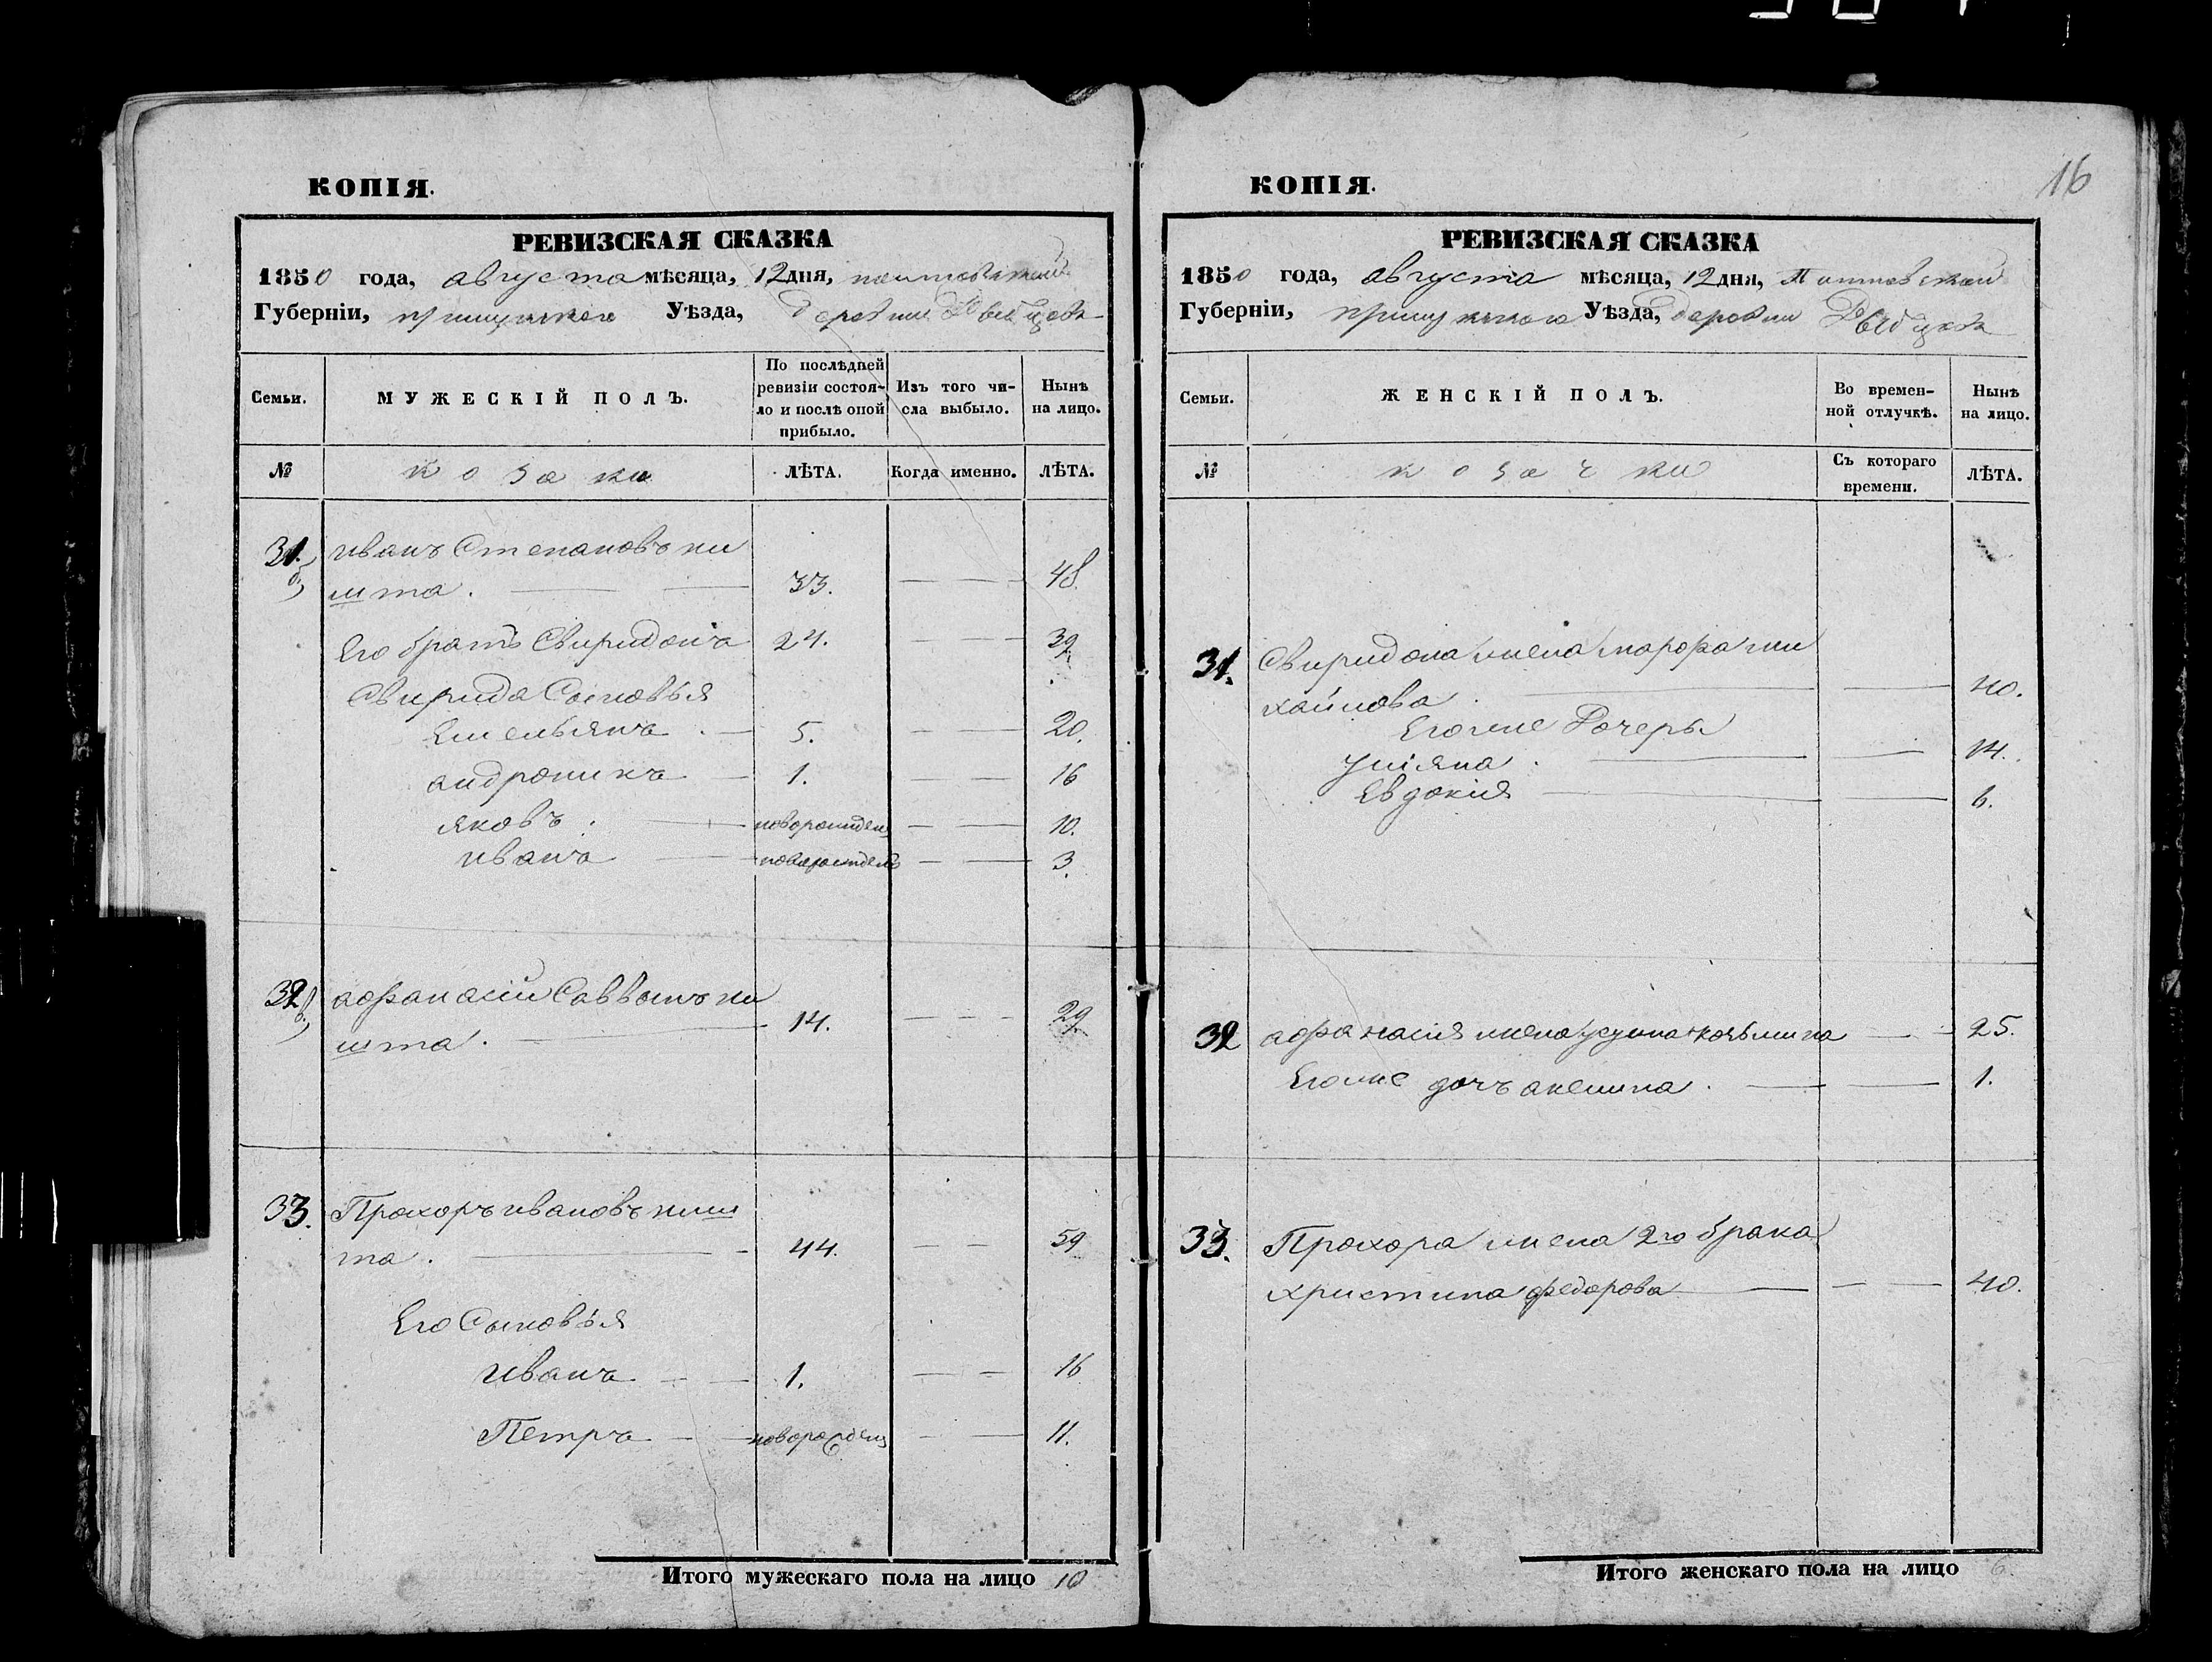 КОПІЯ.
РЕВИЗСКАЯ СКАЗКА
1850 года, августа мѣсяца, 12 дня, полтавской
Губерніи, прилуцкого Уѣзда, деревни Дѣдовцовъ
Семьи.
МУЖЕСКІЙ ПОЛЪ.
По послѣдней ревизіи состоя-ло и послѣ оной прибыло.
Изъ того чи-сла выбыло.
Нынѣ на лицо.
№
козаки
ЛѢТА.
Когда именно.
ЛѢТА.
31. иванъ Степановъ ки
шта. 33. 48.
Его братъ Свиридонъ 24. 39.
Свирида Сыновья
Емельянъ 5. 20.
андроникъ 1. 16
яковъ. новорожден 10.
иванъ новорожденъ 3.
32 афанасій Саввинъ ки
шта. 14. 29
33. Прохоръ ивановъ киш
та. 44. 59
Его Сыновья
Иванъ 1. 16
Петръ новорожден 11.
Итого мужескаго пола на лицо 10
16
КОПІЯ.
РЕВИЗСКАЯ СКАЗКА
1850 года, августа мѣсяца, 12 дня, Полтавской
Губерніи, прилуцкого Уѣзда, деревни
Семьи.
ЖЕНСКІЙ ПОЛЪ.
Во времен-ной отлучкѣ.
Нынѣ на лицо.
№
козачки
Съ котораго времени.
ЛѢТА.
31. Свиридона жена марфа ми
хайлова 40.
Егоже Дочеры
уліяна. 14.
Евдокія 6.
32 афанасія жена козьмина 25.
Егоже дочъ акелина. 1.
33. Прохора жена 2го брака
христина федорова 40.
Итого женскаго пола на лицо 6.